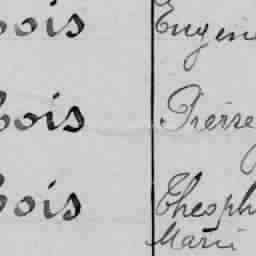 bois Eugène
bois Pierre
bois Theoph
Marii